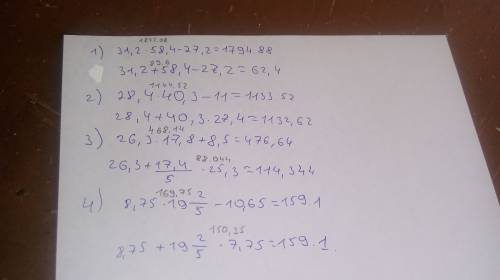 1822.08
1) 31,2 · 58,4 - 27,2 = 1794.88
89,6
31,2 + 58,4 - 27,2 = 62,4
1144.52
2) 28,4 · 40,3 - 11 = 1133.52
28,4 + 40,3 · 27,4 = 1132,62
468,14
3) 26,3 · 17,8 + 8,5 = 476,64
88.044
26,3 + 17,4/5 · 25,3 = 114,344
169,75
4) 8,75 · 19 2/5 - 10,65 = 159.1
150,35
8,75 + 19 2/5 · 7,75 = 159.1.